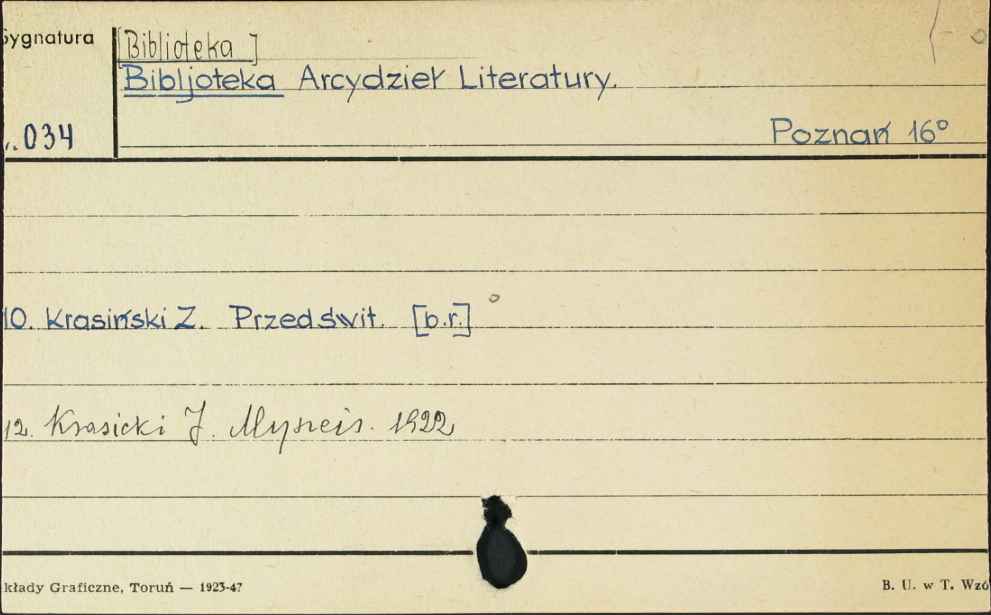 Sygnatura
[Biblioteka]
Bibljoteka Arcydzieł Literatury.
034
Poznań 16°
10. Krasiński Z. Przedświt. [b.r.]
12. Krasicki J. Myszeis. 1922
kłady Graficzne, Toruń — 1923-47
B. U. w T. Wzó